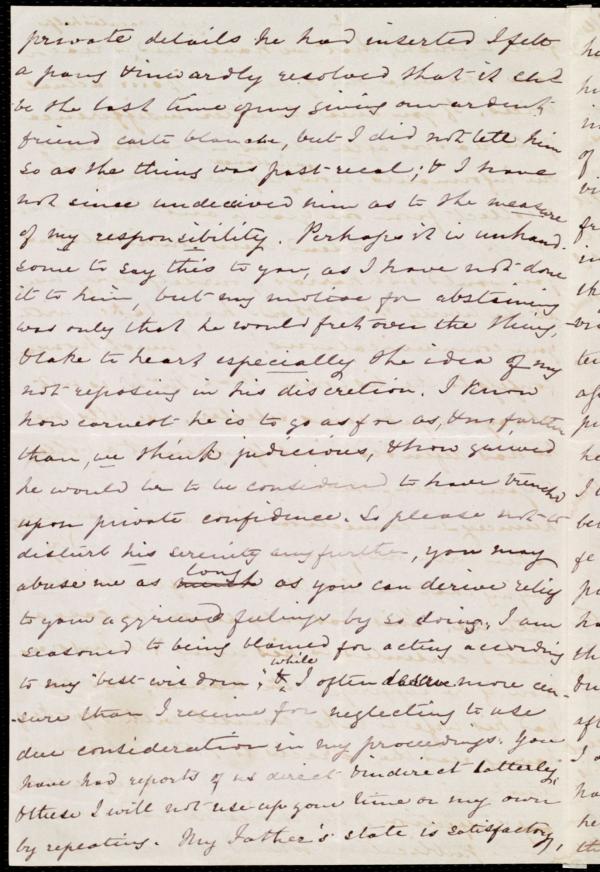 private details he had inserted I felt
a pang & inwardly resolved that it shd
be the last time of my giving our ardent
friend carte blanche, but I did not tell him
so as the thing was past recal; & I have
not since undeceived him as to the measure
of my responsibility. Perhaps it is unhand-
some to say this to you, as I have not done
it to him, but my motive for abstaining
was only that he would fret over the thing,
& take to heart especially the idea of my
not reposing in his discretion. I know
how earnest he is to go as far as, & no further
than, we think judicious, & how grieved
he would be to be considered to have trenched
upon private confidence. So please not to
disturb his serenity any further, you may
long
abuse me as much as you can derive relief
to your aggrieved feelings by so doing. I am
seasoned to being blamed for acting according
while
to my "best wisdom", & I often deserve more cen-
sure than I receive for neglecting to use
due consideration in my proceedings. You
have had reports of us direct & indirect latterly,
& these I will not use up your time or my own
by repeating. My Father's state is satisfactory,